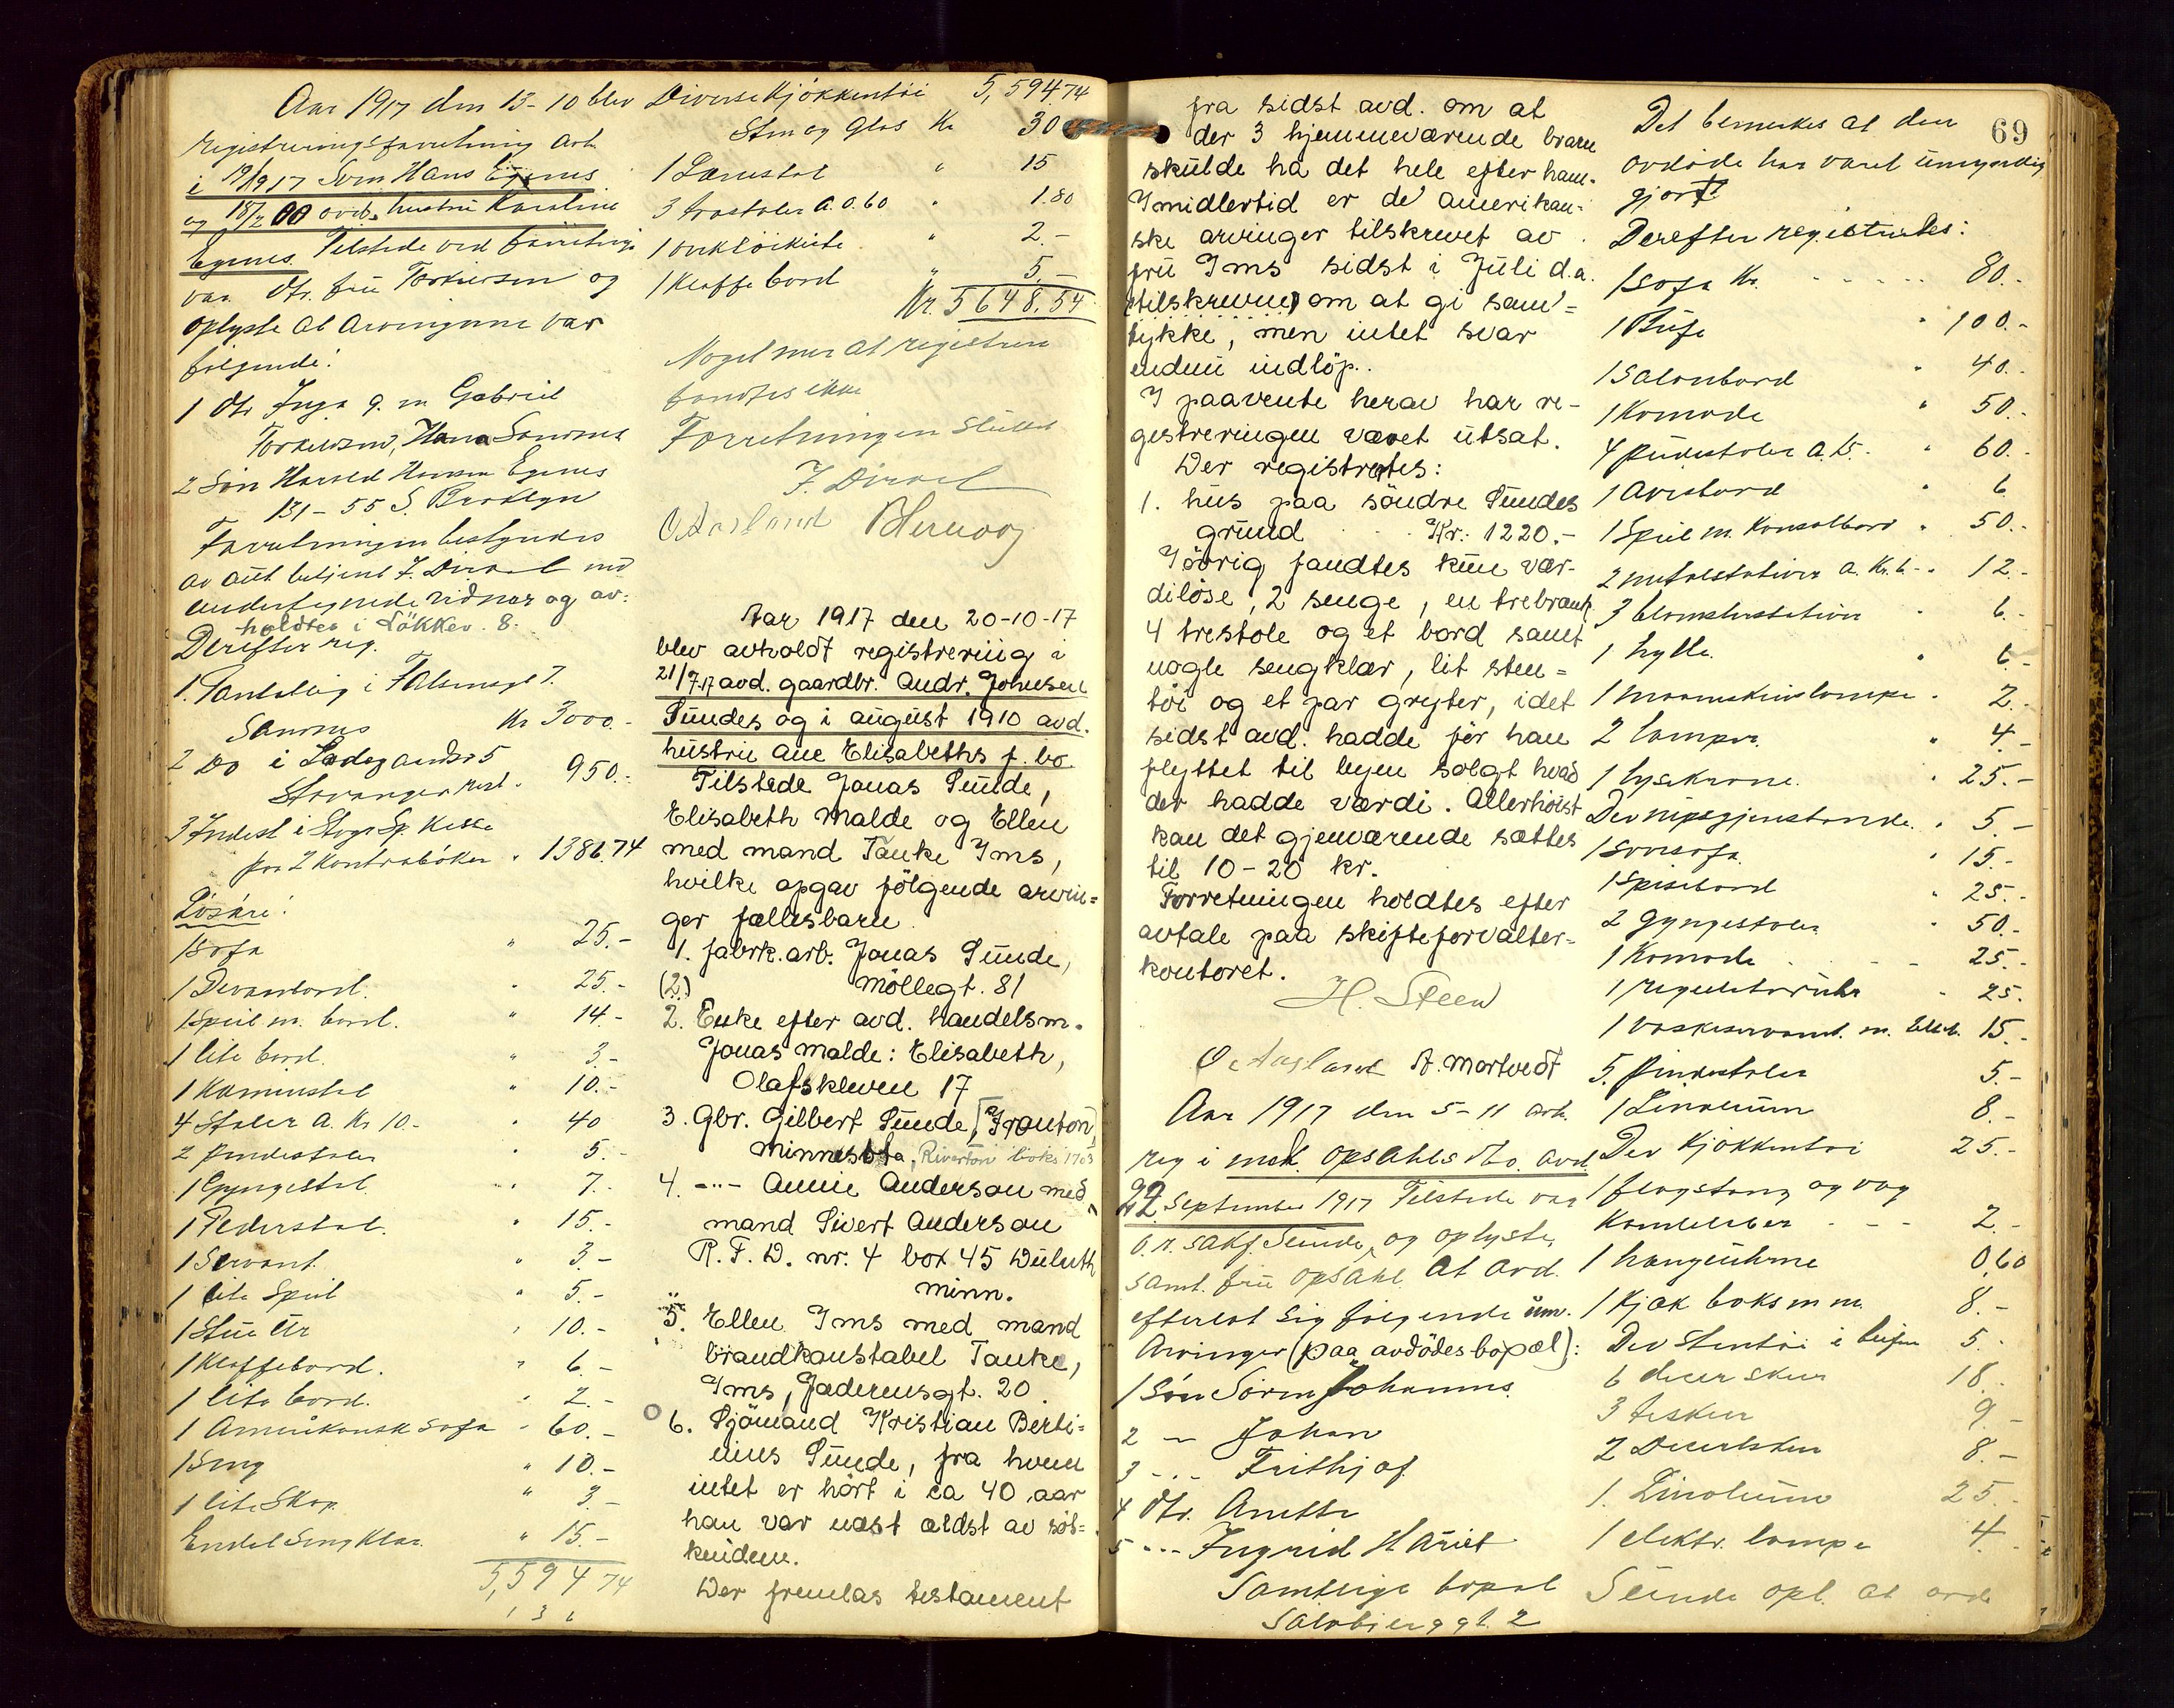 Aar 1917 den 13-10 blev
registreringsforretning avh.
i 19/9 17 Søm Hans Egenes
og 18/2 00 avd. hustru Karoline
Egenes. Tilstede ved forretninge
var Dtr. frue Torkelsen og
oplyste at arvingerne var
følgende:
1 Dtr Inga g. m Gabriel
Torkelsen, Hana Sandnes
2 Søn Harald Hansen Egenes
131-55 S. Brooklyn
Forretningen bestyredes
av aut betjent F. Dirdal med
undertegnede vidner og av-
holdtes i Løkkev. 8.
Derefter reg.
1. Pantoblig i
Sandnes Kr 3000.-
2 Do i Ladegaardsv 5
Stavanger rest. 950.-
3 Indest i Stvgr Sp. Kasse
paa 2 Kontrabøker " 1386.74
Løsøre:
1 Sofa " 25.-
1 Divanbord. " 25.-
1 Speil m. bord. " 14.-
1 lite bord. " 3.-
1 Kaminstol " 10.-
4 Stoler a. Kr 10.- " 40
2 Pindestoler " 5.-
1 Gyngestol " 7.-
1 Pederstol. " 15.-
1 Servant. " 3.-
1 lite Speil " 5.-
1 Stue Ur " 10.-
1 Klaffebord. " 6.-
1 lite bord. " 2.-
1 Amerikansk Sofa " 60.-
1 Seng " 10.-
1 lite Skap. " 3.-
Endel Sengklær. " 15.-
5,594 74
Diverse Kjøkkentøi 5,594 74
Sten og Glas Kr 30
1 Lænestol " 15
3 træstoler a. 0.60 " 1.80
1 " 2.-
1 Klaffebord " 5.-
Kr. 5648.54
Noget mer at registrere
fandtes ikke
Forretningen Sluttet
F. Dirdal
O Aasland
Aar 1917 den 20-10-17
blev avholdt registrering i
21/7.17 avd. gaardbr. Andr. Johnsen
Sundes og i august 1910 avd.
hustru Ane Elisabeths f. bo.
Tilstede Jonas Sunde,
Elisabeth Malde og Ellen
med mand Tanke Ims,
hvilke opgav følgende arvin=
ger fællesbarn.
1. fabrk. arb. Jonas Sunde,
(2.) Møllegt. 81
2. Enke efter avd. handelsm.
Jonas Malde: Elisabeth,
Olafskleven 17
3. Gbr. Gilbert Sunde, Franton,
Minnesota, Riverton boks 1703
4. -"- Annie Anderson med
mand Sivert Anderson
R. F. D. nr. 4 box 45 Duluth
Minn.
5. Ellen Ims med mand
brandkonstabel Tanke,
Ims, Jæderensgt. 20
6. Sjømand Kristian Berti=
nius Sunde, fra hvem
intet er hørt i ca 40 aar
han var næst ældst av søs=
kendene.
Der fremlas testament
fra sidst avd. om at
der 3 hjemmeværende barn
skulde ha det hele efter ham.
Imidlertid er de amerikan=
ske arvinger tilskrevet av
fru Ims sidst i Juli d.a.
(tilskreven) om at gi sam=
tykke, men intet svar
endnu indløp.
I paavente herav har re-
gistreringen været utsat.
Der registrertes:
1. hus paa søndre Sundes
grund Kr.: 1220.-
Iøvrig fandtes kun vær-
diløse, 2 senge, en trebrank
4 trestole og et bord samt
nogle sengklær, lit sten=
tøi og et par gryter, idet
sidst avd. hadde før han
flyttet til byen solgt hvad
der hadde værdi. Allerhøist
kan det gjenværende sættes
til 10-20 kr.
Forretningen holdtes efter
avtale paa skifteforvalter-
kontoret.
H. Steen
O. Aasland A. Mortvedt
Aar 1917 den 5-11 avh.
reg i mek. Opsahls Bo. avd
22 September 1917 Tilstede var
o.r. sakf. Sunde, og oplyste,
samt. frue Opsahl at avd.
efterlot sig følgende um.
Arvinger (paa avdødes bopæl):
1 Søn Søren Johannes.
2 -"- Johan
3 -"- Frithjof
4 Dtr. Anette
5 -"- Ingrid Hariet
Samtlige bopæl
Solvbjerggt. 2
69
Det bemerkes at den
avdøde har været umyndig
gjort
Derefter registrertes:
1 Sofa Kr. 80.-
1 Bufe " 100.-
1 Salonbord " 40.-
1 Komode " 50.-
4 pudestoler a. 15.- " 60.-
1 Avisbord " 6
1 Speil m. Konsolbord " 50.-
2 metalstativer a. Kr. 6.- " 12.-
3 blomsterstativer " 6.-
1 hylle. " 6.-
1 maaneskinslampe " 2.-
2 lamper. " 4.-
1 lysekrone. " 25.-
Div nipsgjenstande. " 5.-
1 sovesofa. " 15.-
1 Spisebord " 25.-
2 Gyngestoler " 50.-
1 Komode 25.-
1 regulatoruhr " 25.
1 vaskeservant m. 15.-
5. Pindestoler 5.-
1 Linoleum 8.-
Div Kjøkkentøi 25.-
1 flagstang og vog
Kandelaber 2.-
1 hængeuhrne 0,60
1 Kjøk boks m m. 8.-
Div Stentøi i bufen 5.
6 18.-
3 teskeer 9.-
2 8.-
1. Linoleum 25.-
1 elektr. lampe 4.-
Sunde opl. at avd.